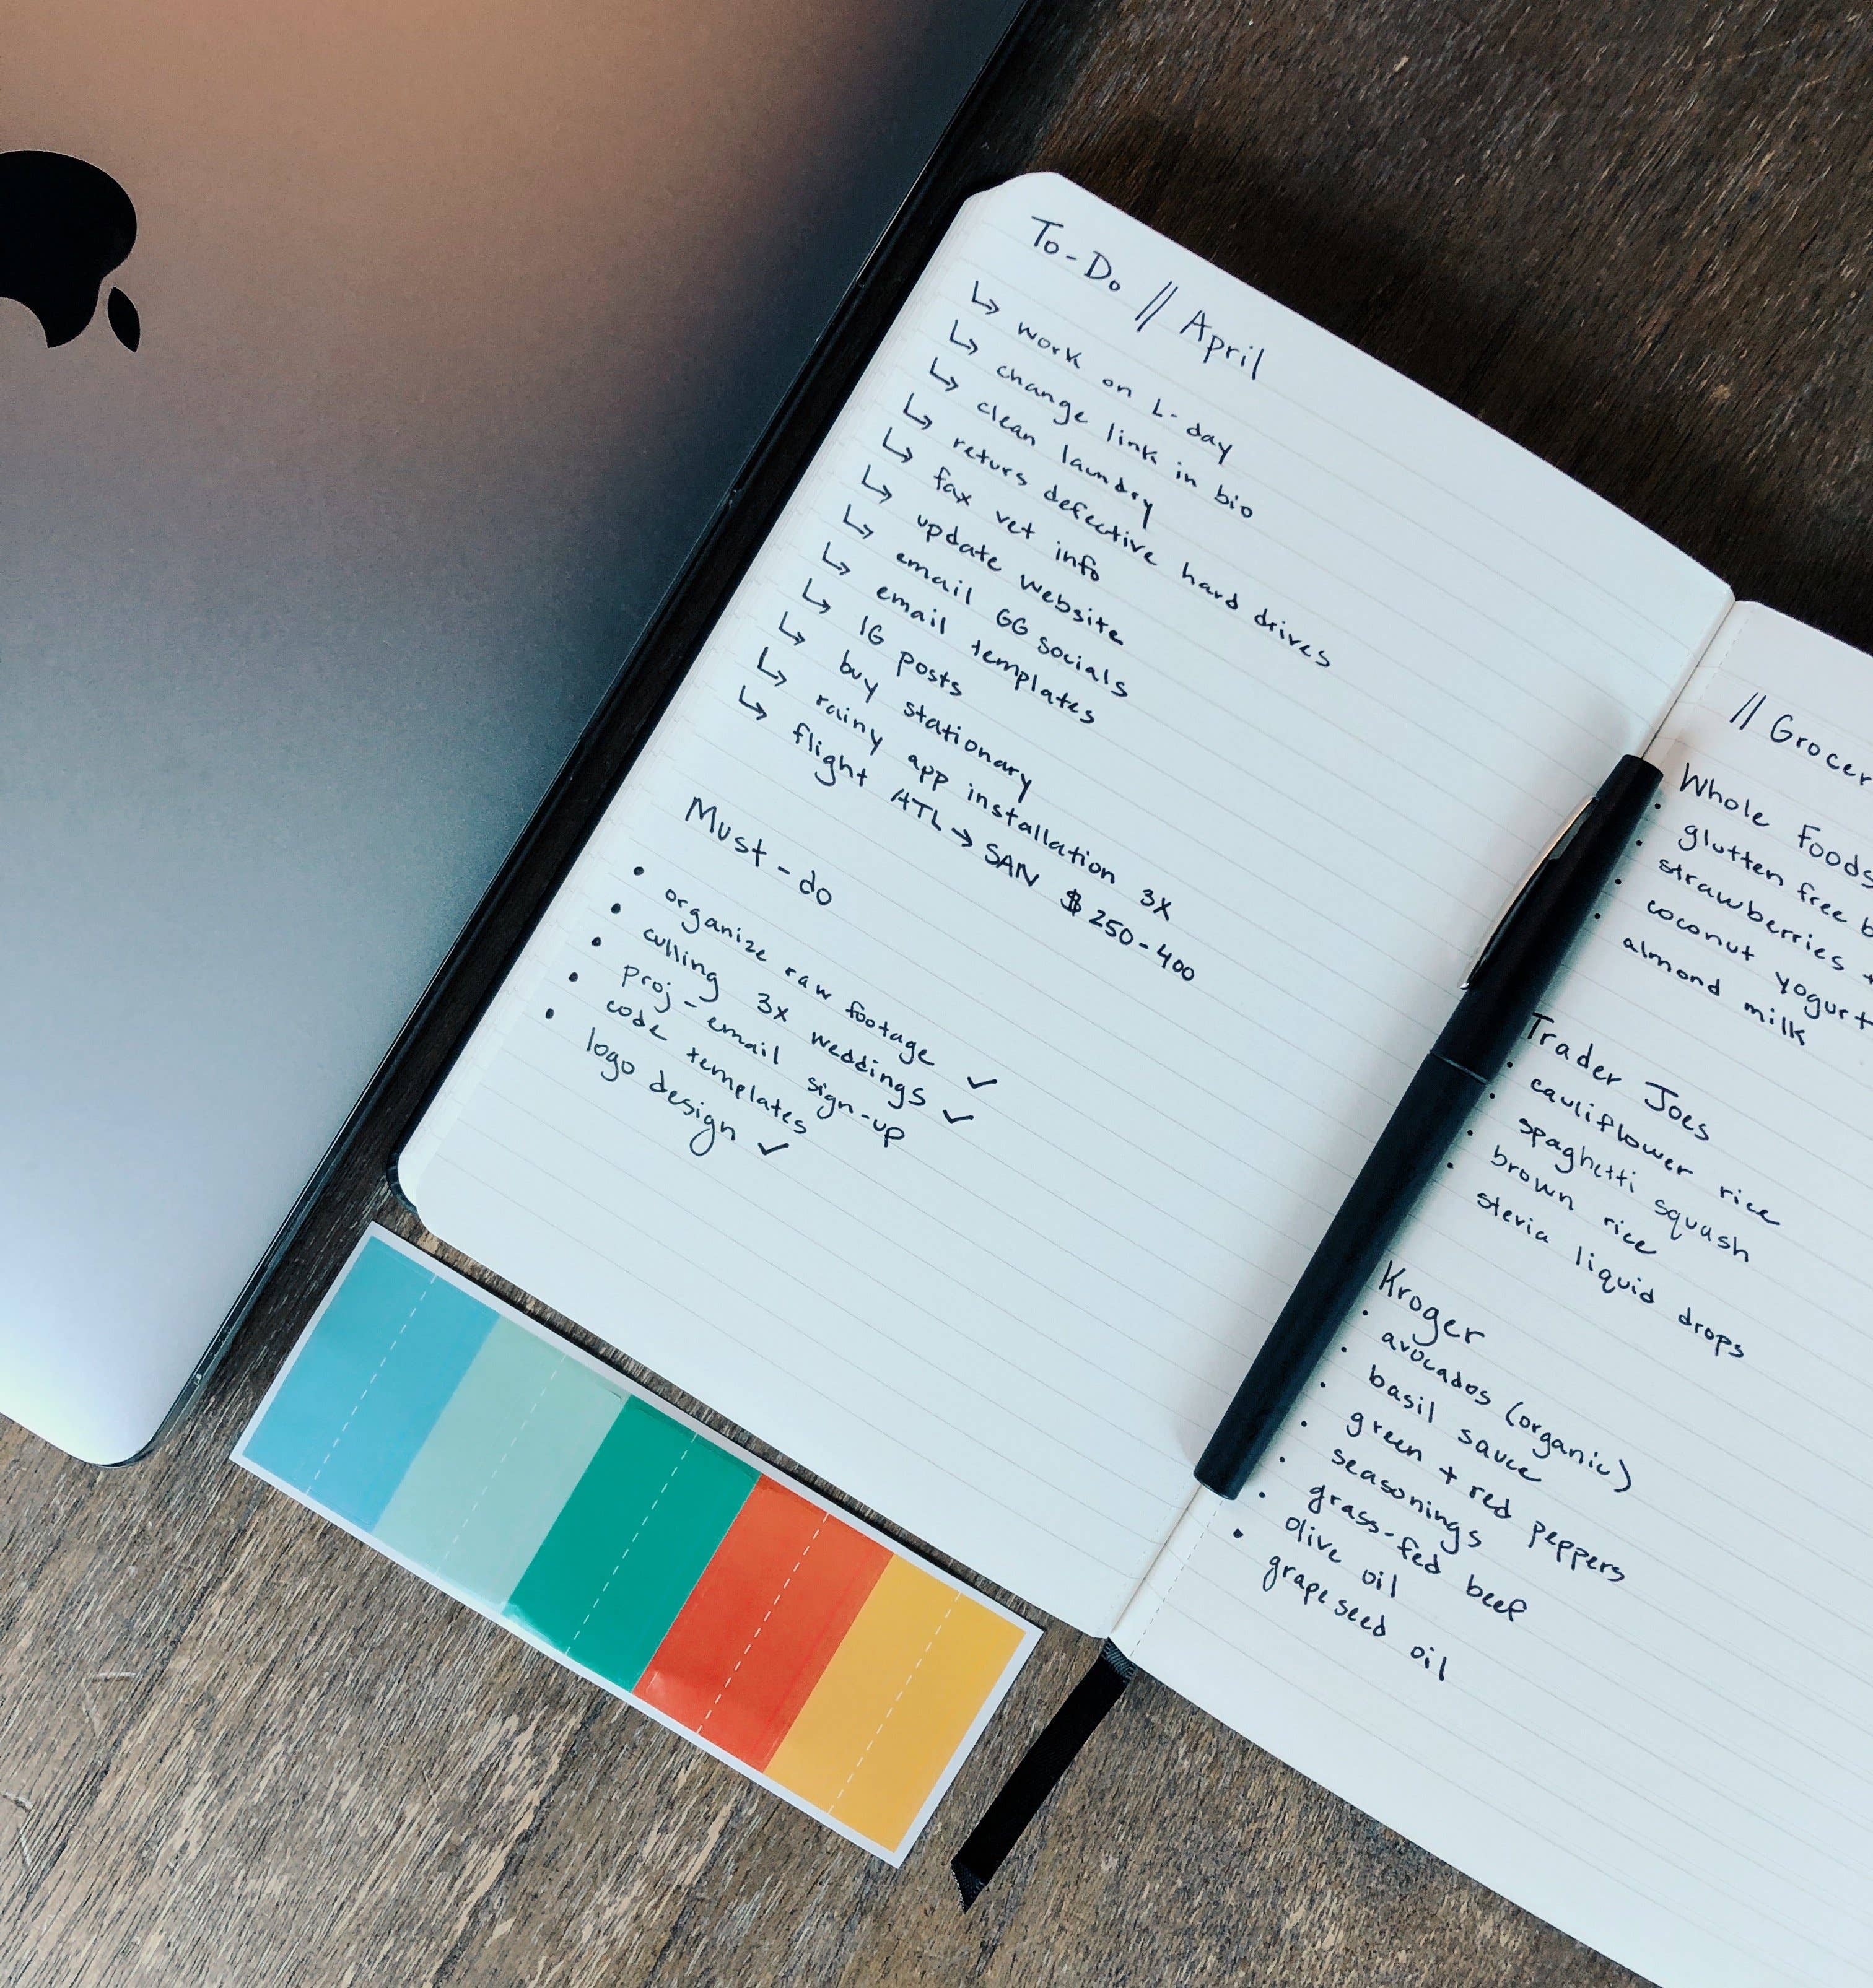 To-Do // April
↳ work on L-day
↳ change link in bio
↳ clean laundry
↳ returs defective hard drives
↳ fax vet info
↳ update website
↳ email GG socials
↳ email templates
↳ IG posts
↳ buy stationary
↳ rainy app installation 3X
↳ flight ATL → SAN $250-400
Must-do
• organize raw footage ✓
• culling 3x weddings ✓
• proj-email sign-up
• code templates
• logo design ✓
// Grocer
Whole Foods
• glutten free b
• strawberries +
• coconut yogurt
• almond milk
Trader Joes
• cauliflower rice
• spaghetti squash
• brown rice
• stevia liquid drops
Kroger
• avocados (organic)
• basil sauce
• green + red peppers
• seasonings
• grass-fed beef
• olive oil
• grapeseed oil